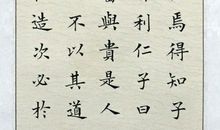 焉得知子
利仁子曰
與貴是人
不以其道
造次必於